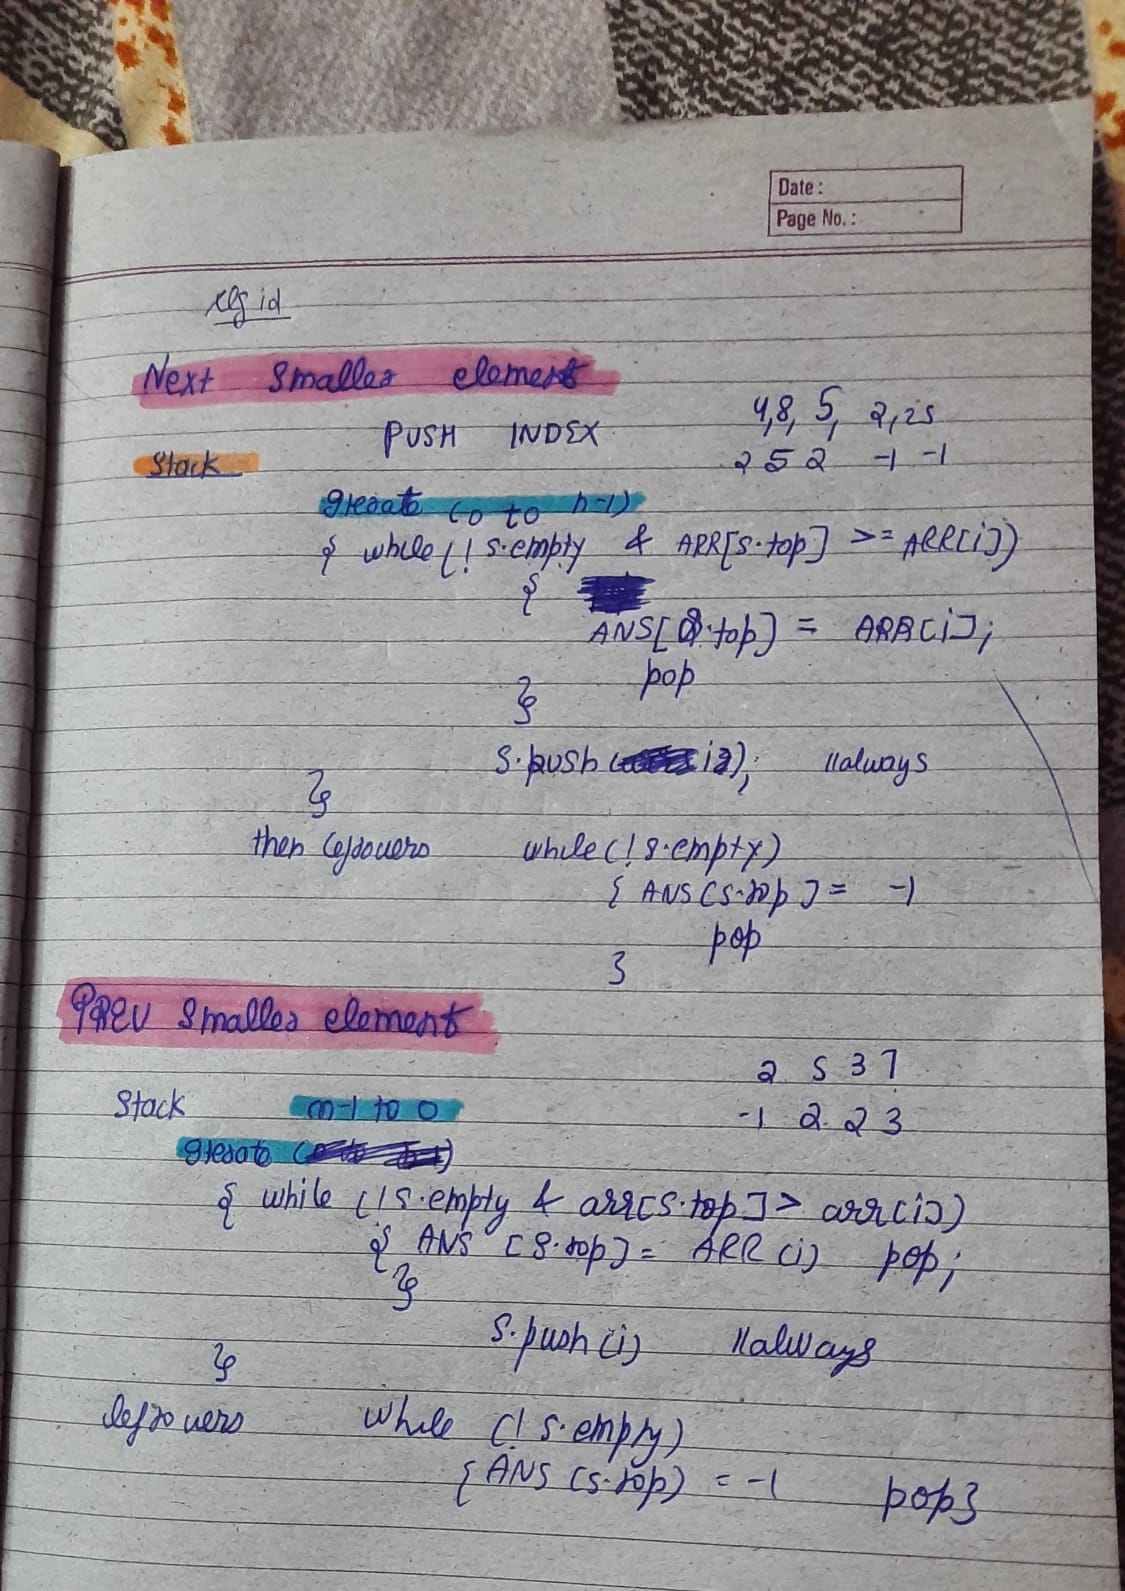 Date :
Page No. :
id
Next smaller element
4,8, 5, 2,25
PUSH INDEX
2 5 2 -1 -1
Stack
Iterate (0 to n-1)
{ while(! s.empty & ARR[s.top] >= ARR[i])
{
ANS[s.top] = ARR[i];
pop
}
s.push(i); //always
}
then leftovers while(! s.empty)
{ ANS[s.top] = -1
pop
}
PREV smaller element
2 5 3 7
Stack n-1 to 0 -1 2 2 3
Iterate ( )
{ while (!s.empty & arr[s.top] > arr[i])
{ ANS [s.top] = ARR[i] pop;
}
s.push(i) //always
}
leftovers while (! s.empty)
{ ANS [s.top] = -1 pop}